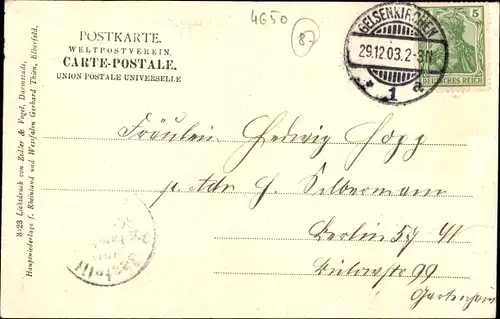 4650
87
POSTKARTE.
WELTPOSTVEREIN.
CARTE-POSTALE.
UNION POSTALE UNIVERSELLE
GELSENKIRCHEN
29.12.03.2-3N
* 1 a
5
DEUTSCHES REICH
Fräulein Hedwig Hopp
p. Adr. H. Silbermann
Berlin 57 W
Bülowstr 99
Gartenhaus
3823 Lichtdruck von Zedler & Vogel, Darmstadt.
Hauptniederlage f. Rheinland und Westfalen Gerhard Thien, Elberfeld.
Bestellt